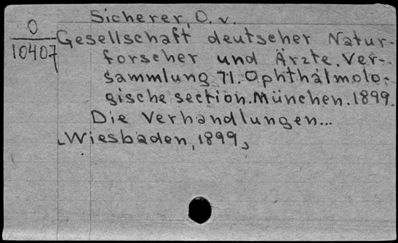 Sicherer, O. v.
O
10407
Gesellschaft deutscher Natur-
forscher und Ärzte. Ver-
sammlung 71. Ophthalmolo-
gische section. München. 1899.
Die Verhandlungen...
Wiesbaden, 1899,